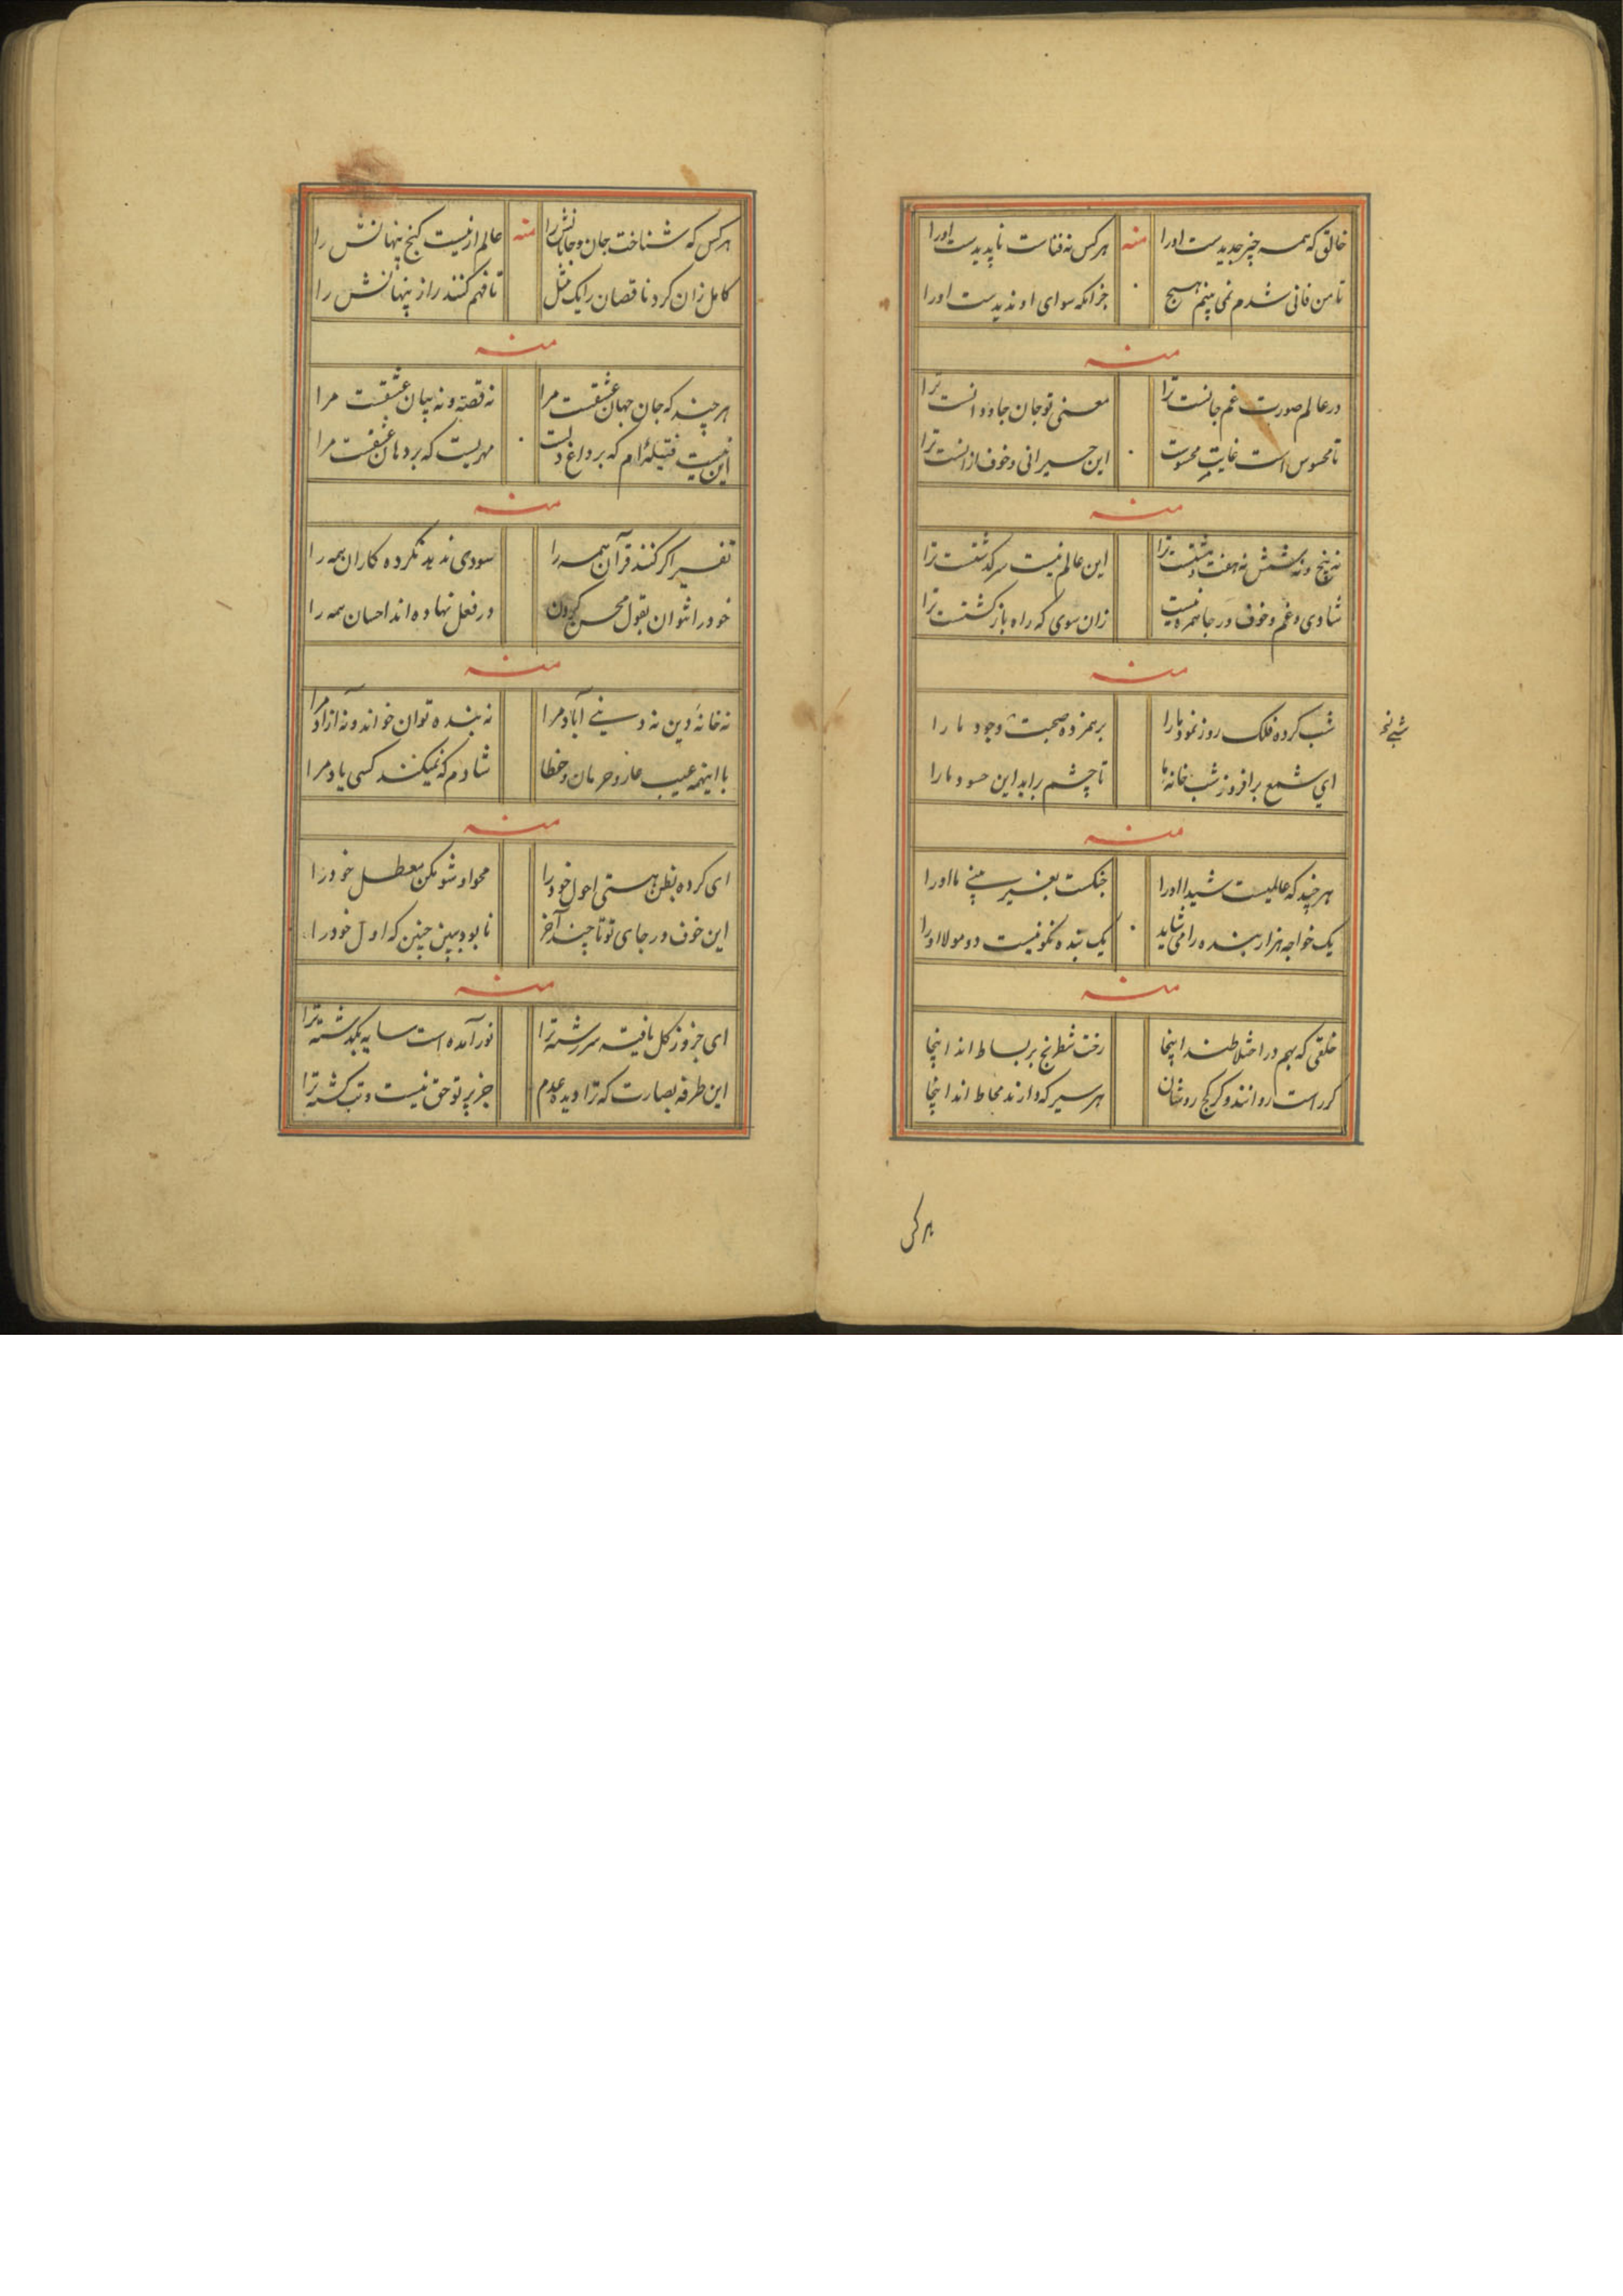 خالق که همه چیز جدیدست اورا منه هرکس نه فناست ناپدیدست اورا
تا من فانی شدم نمی بینم هیچ جز آنکه سوای او ندیدست اورا
منه
در عالم صورت غم جانست ترا معنی تو جان جاودانست ترا
تا محسوس است غایت محسوست این حیرانی و خوف ازانست ترا
منه
نه پنج و نه شش نه هفت و هشتست ترا این عالم نیست سرکذشتست ترا
شادی و غم و خوف و رجا نمره نیست زان سوی که راه بازکشتست ترا
منه
شب کرده فلک روز نمود مارا برهمزده صحبت وجود مارا
ای شمع برافروز شب خانه ما تا چشم براید این حسود مارا
منه
هرچند که عالمیست شیدا اورا جنکست بغیر بینی ما اورا
یک خواجه هزار بنده را می شاید یک بنده نکو نیست دو مولا اورا
منه
خلقی که بهم در اختلاطند اینجا رخت شطرنج بر بساط اند اینجا
کر راست روانند و کر کج روشان هر سیر که دارند محاط اند اینجا
هرکس
هرکس که شناخت جان و جانانش را منه عالم ازنیست کنج پنهانش را
کامل زان کرد ناقصان را یک مثل تا فهم کنند راز پنهانش را
منه
هرچند که جان جهان عشقست مرا نه قصه و نه بیان عشقست مرا
این نیست فتیله ام که بر داغ دلست مهریست که بر دهان عشقست مرا
منه
تفسیر اکر کنند قرآن همه را سودی ندید نکرده کاران همه را
خودرا نتوان بقول محسن کردن در فعل نهاده اند احسان همه را
منه
نه خانهٔ دین نه دینی آباد مرا نه بنده توان خواند و نه آزاد مرا
با اینهمه عیب و عار و حرمان و خطا شادم که نمیکند کسی یاد مرا
منه
ای کرده بظن هستی احول خودرا محو او شو مکن معطل خودرا
این خوف و رجای تو تا چند آخر نابود ببین چنین که اول خودرا
منه
ای جزو ز کل یافته سررشته ترا نور آمده است سایه بکذشته ترا
این طرفه بصارت که ترا دیده عدم جز پرتو حق نیست و تب کشته ترا